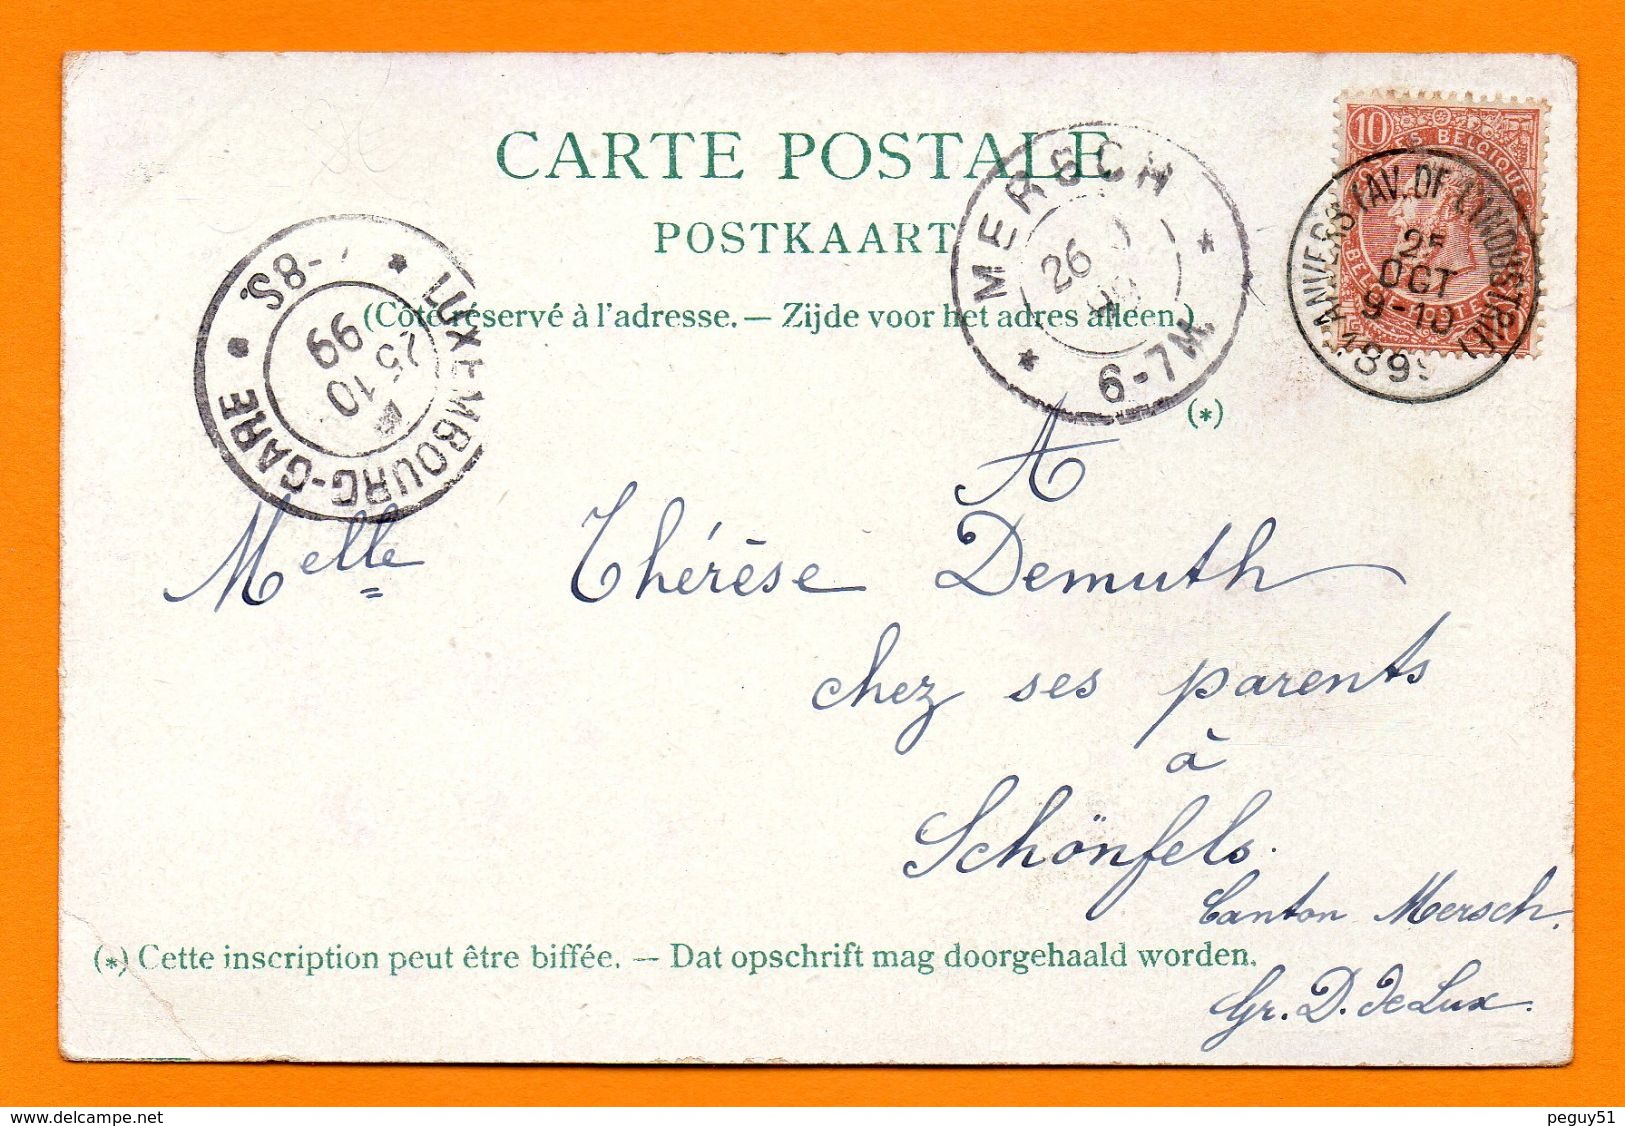 CARTE POSTALE
POSTKAART
(Côté réservé à l'adresse. — Zijde voor het adres alleen.)
(*)
LUXEMBOURG-GARE
* 7-8S. *
25 10
99
MERSCH
26
* 6-7M. *
10
BELGIQUE
ANVERS (AV. DE L'INDUSTRIE)
25
OCT
9-10
1899
A
Melle Thérèse Demuth
chez ses parents
à
Schönfels.
Canton Mersch.
Gr. D. de Lux.
(*) Cette inscription peut être biffée. — Dat opschrift mag doorgehaald worden.
delcampe.net
peguy51